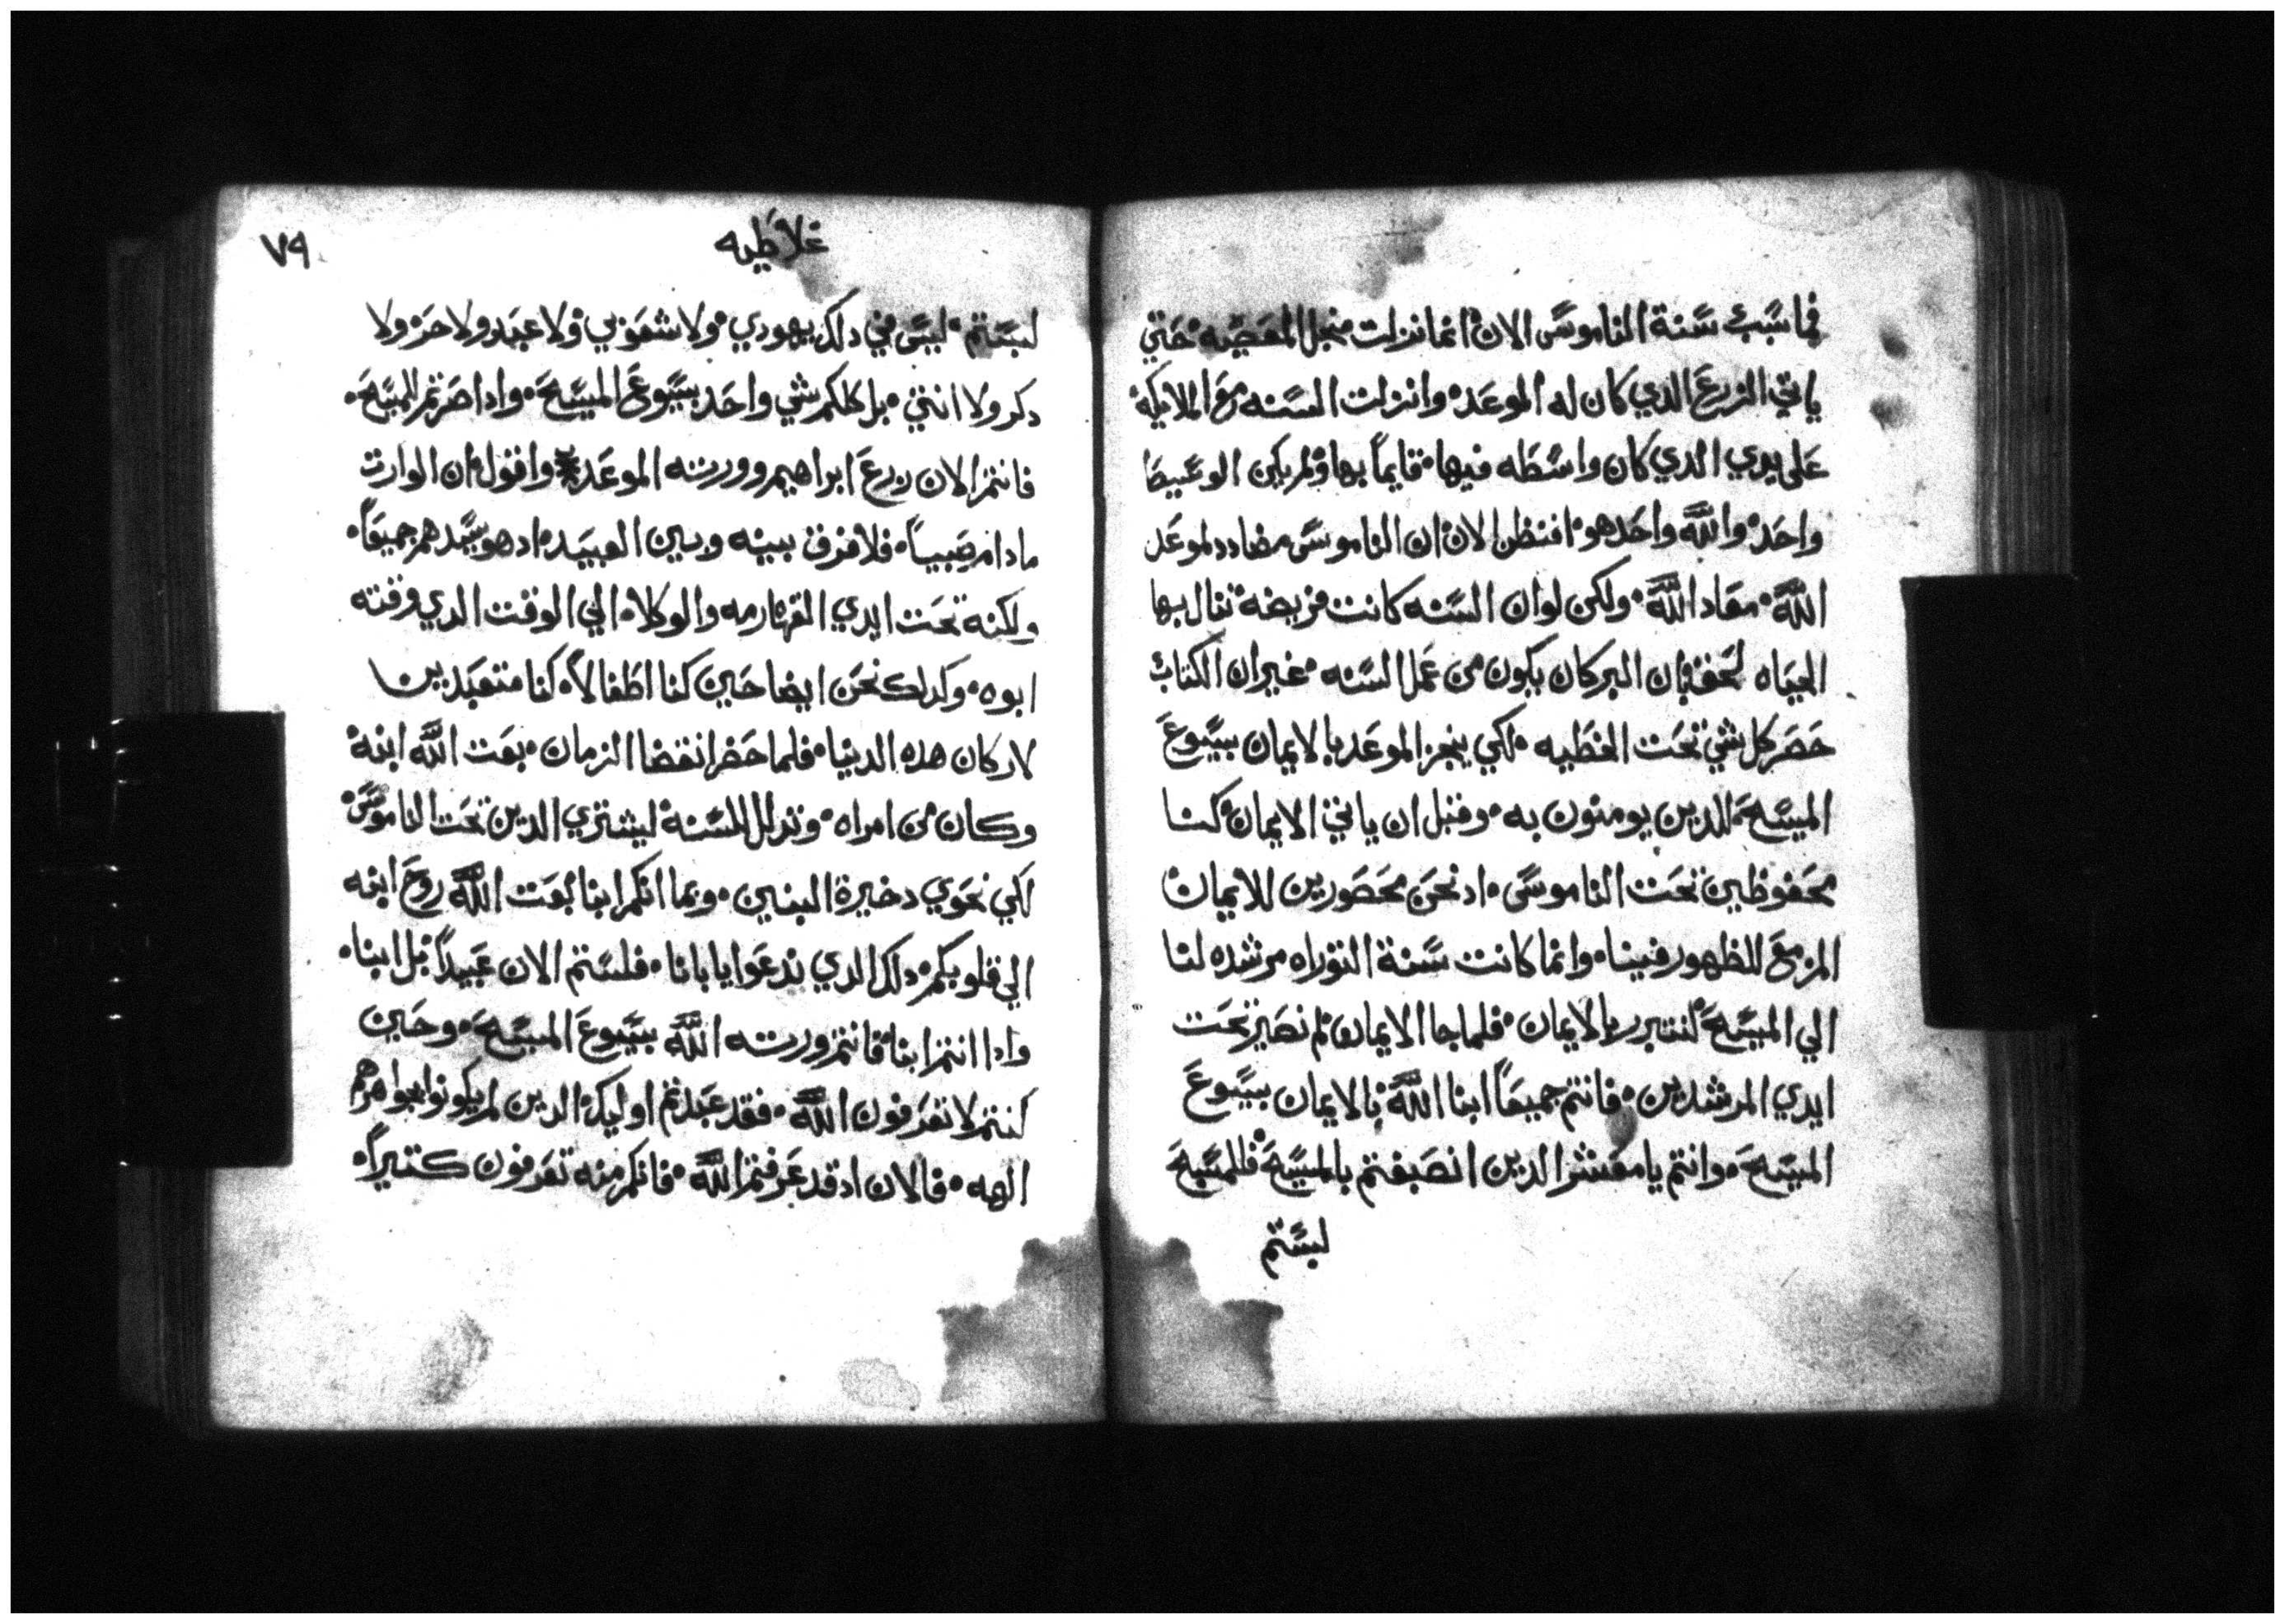 فما سبب سنة الناموس الان انما انزلت منجل المعصيه حتي
ياتي الزرع الدي كان له الموعد وانزلت السنه مع الملايكه
على يدي الدي كان واسطه فيها قايماً بها ولم يكن الوسيط
واحد والله واحد هو افتظن الان ان الناموس مضادد لموعد
الله معاد الله ولكن لو ان السنه كانت فريضة تنال بها
الحياه لحق بان البر كان يكون من عمل السنه غير ان الكتاب
حصر كل شي تحت الخطيه لكي ينجز الموعد بالايمان بيسوع
المسيح للدين يومنون به وقبل ان ياتي الايمان كنا
محفوظين تحت الناموس اد نحن محصورين للايمان
المزمع للظهور فينا وانما كانت سنة التوراه مرشده لنا
الي المسيح لنتبرر بالايمان فلما جا الايمان لم نصير تحت
ايدي المرشدين فانتم جميعاً ابنا الله بالايمان بيسوع
المسيح وانتم يا معشر الدين انصبغتم بالمسيح فالمسيح
لبستم
غلاطيه
٧٩
لبستم ليس في دلك يهودي ولا شعوبي ولا عبد ولا حر ولا
دكر ولا انتي بل كلكم شي واحد بيسوع المسيح وادا صرتم للمسيح
فانتم الان زرع ابراهيم وورتته الموعد واقول ان الوارت
مادام صبياً فلا فرق بينه وبين العبيد اد هو سيدهم جميعاً
ولكنه تحت ايدي القهارمه والوكلاء الي الوقت الدي وقته
ابوه وكدلك نحن ايضا حين كنا اطفالاً كنا متعبدين
لاركان هده الدنيا فلما حضر انقضا الزمان بعت الله ابنه
وكان من امراه وتدلل للسنة ليشتري الدين تحت الناموس
لكي نحوي دخيرة البنين وبما انكم ابنا بعت الله روح ابنه
الي قلوبكم دلك الدي ندعوا يا بانا فلستم الان عبيداً بل ابنا
وادا انتم ابنا فانتم وررته الله بيسوع المسيح وحين
كنتم لا تعرفون الله فقد عبدتم اوليك الدين لم يكونوا بجواهرهم
الهه فالان اد قد عرفتم الله فانكم منه تعرفون كتيراً